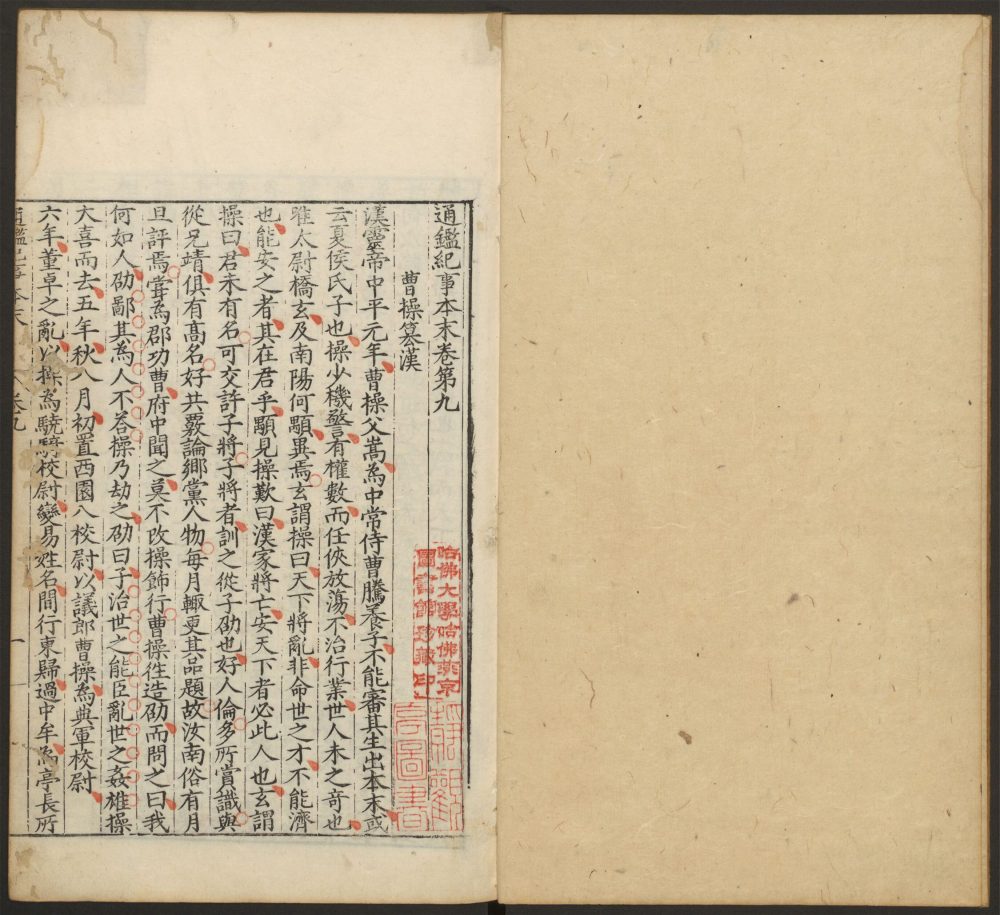 通鑑紀事本末卷第九
曹操篡漢
漢靈帝中平元年曹操父嵩為中常侍曹騰養子不能審其生出本末或
云夏侯氏子也操少機警有權數而任俠放蕩不治行業世人未之奇也
唯太尉橋玄及南陽何顒異焉玄謂操曰天下將亂非命世之才不能濟
也能安之者其在君乎顒見操歎曰漢家將亡安天下者必此人也玄謂
操曰君未有名可交許子將子將者訓之從子劭也好人倫多所賞識與
從兄靖俱有高名好共覈論鄉黨人物每月輒更其品題故汝南俗有月
旦評焉嘗為郡功曹府中聞之莫不改操飾行曹操往造劭而問之曰我
何如人劭鄙其為人不荅操乃劫之劭曰子治世之能臣亂世之姦雄操
大喜而去五年秋八月初置西園八校尉以議郎曹操為典軍校尉
六年董卓之亂以操為驍騎校尉變易姓名間行東歸過中牟為亭長所
一
哈佛大學哈佛燕京
圖書館珍藏印